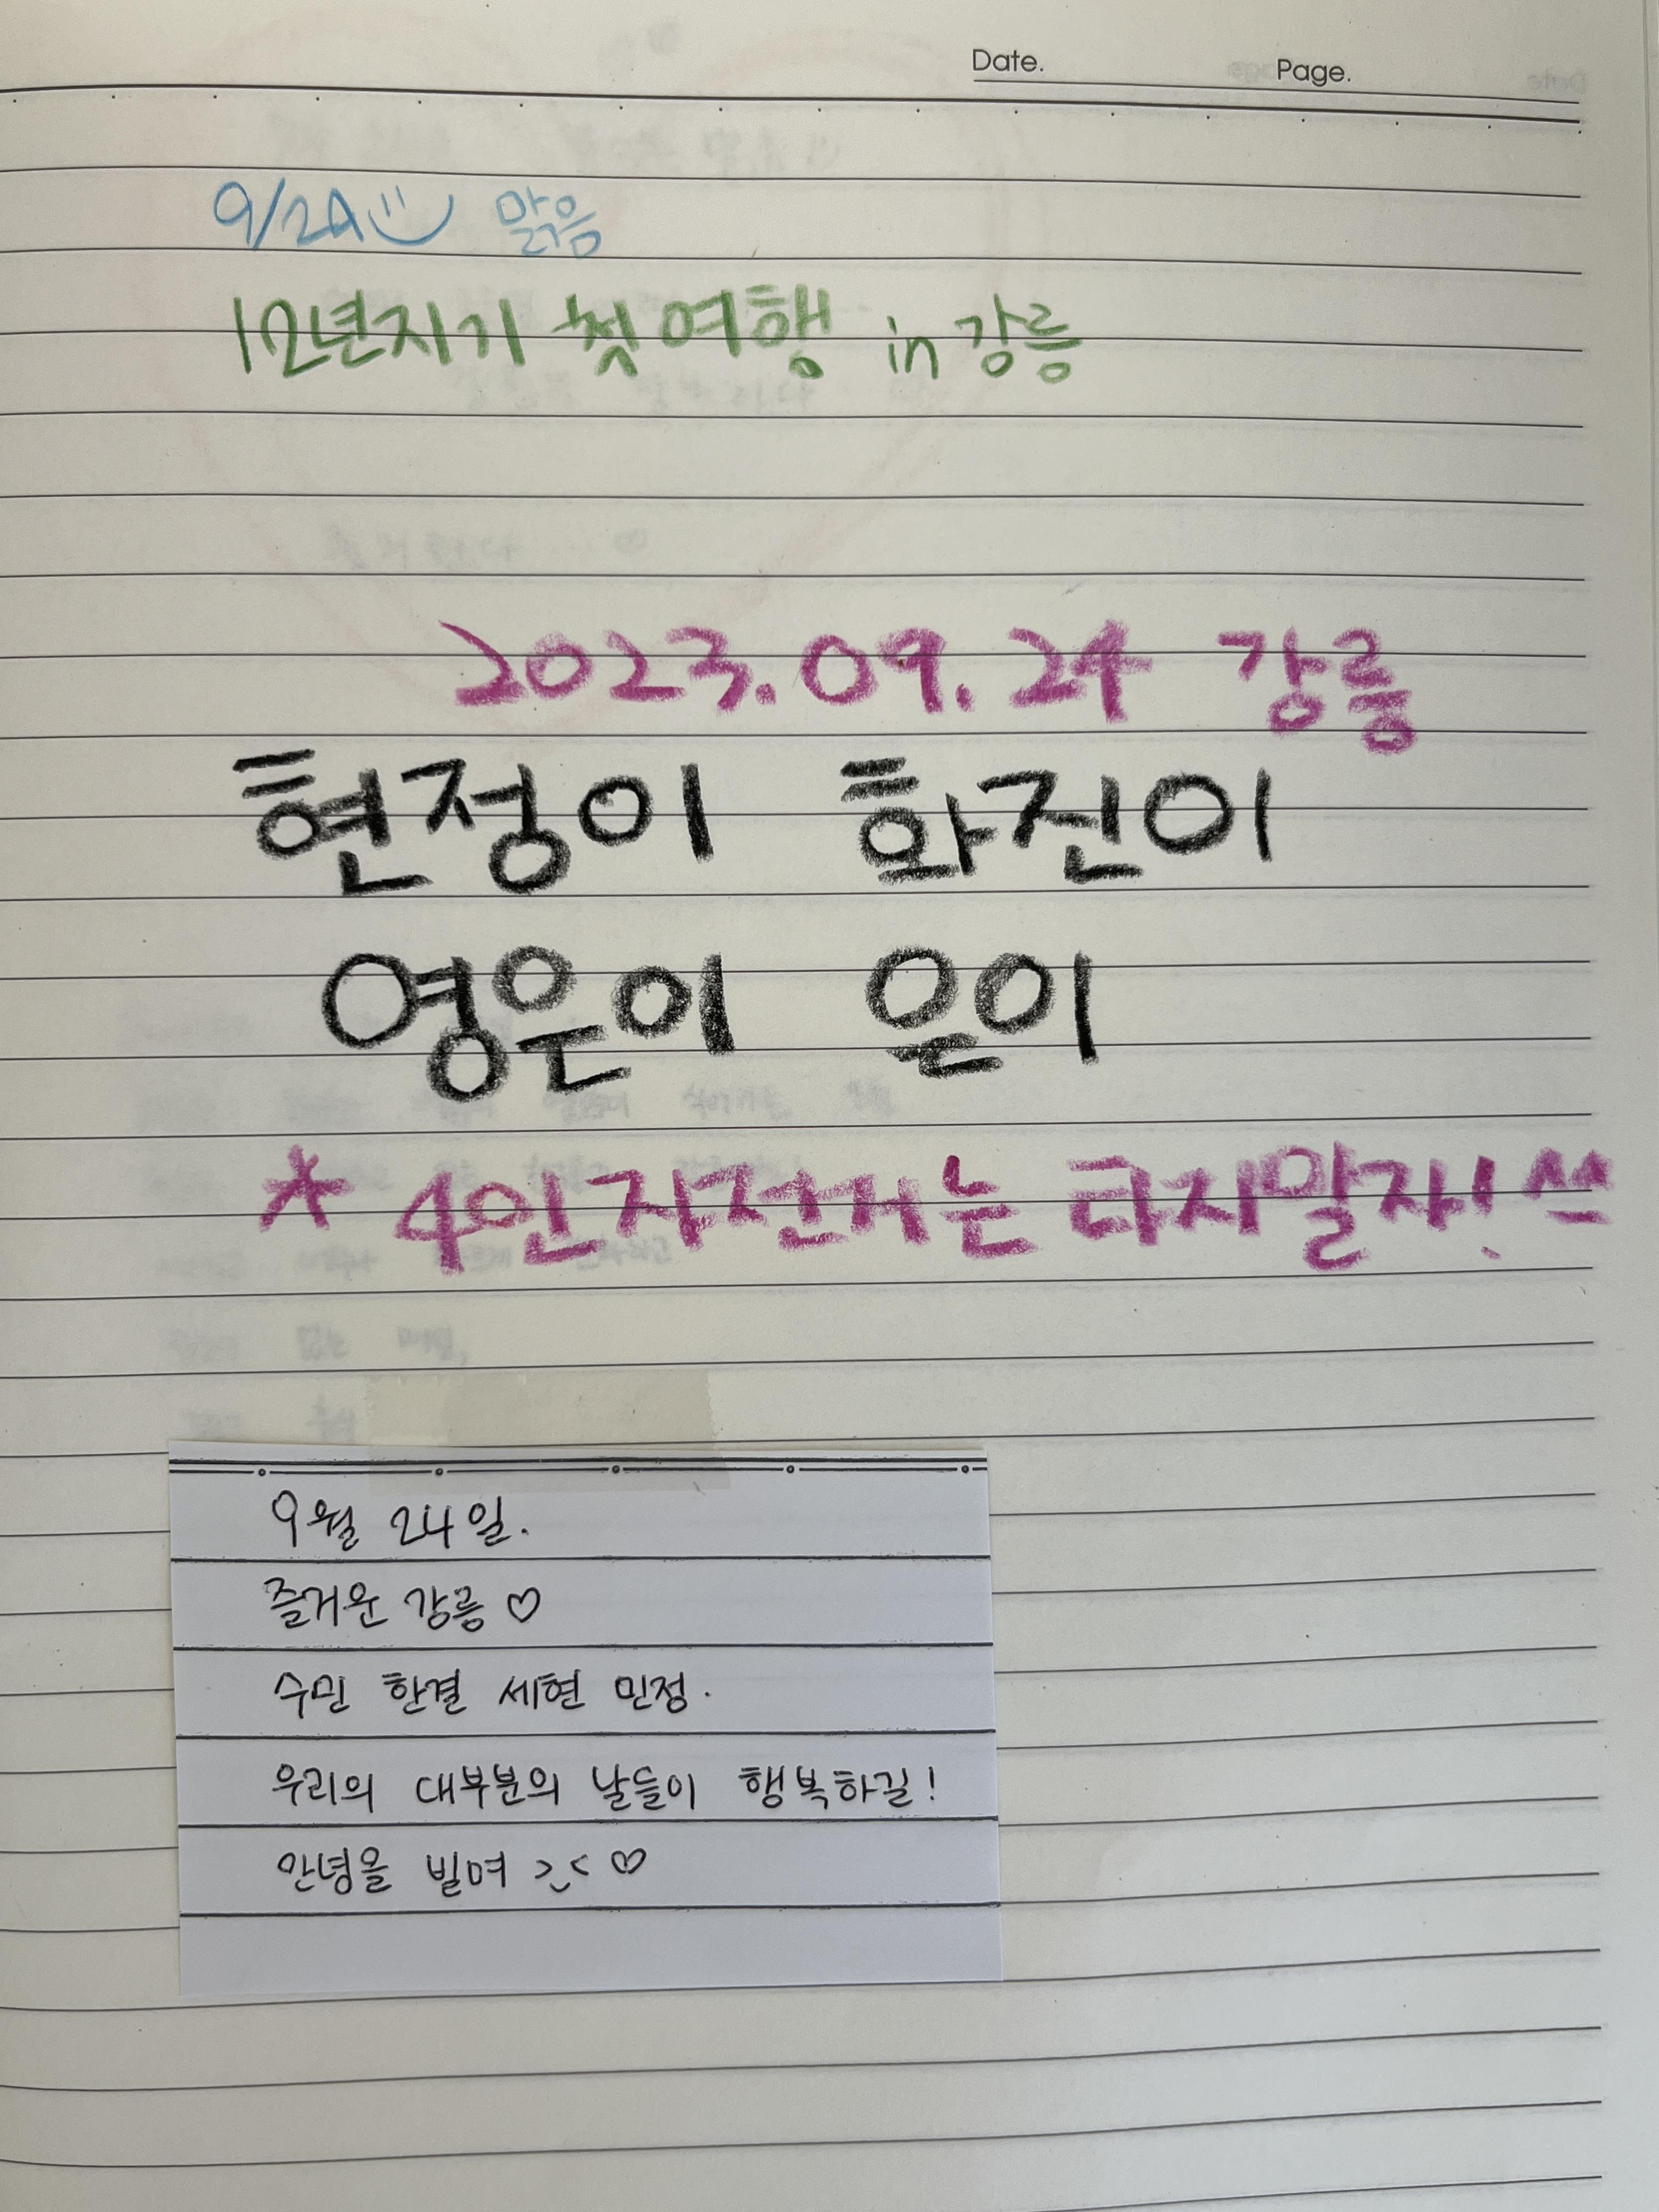 Date. Page.
9/24 맑음
12년지기 첫 여행 in 강릉
2023.09.24 강릉
현정이 화진이
영은이 은이
* 4인 자전거는 타지말자! ^^
9월 24일.
즐거운 강릉 ♡
수민 한결 세현 민정.
우리의 대부분의 날들이 행복하길!
안녕을 빌며 >_< ♡